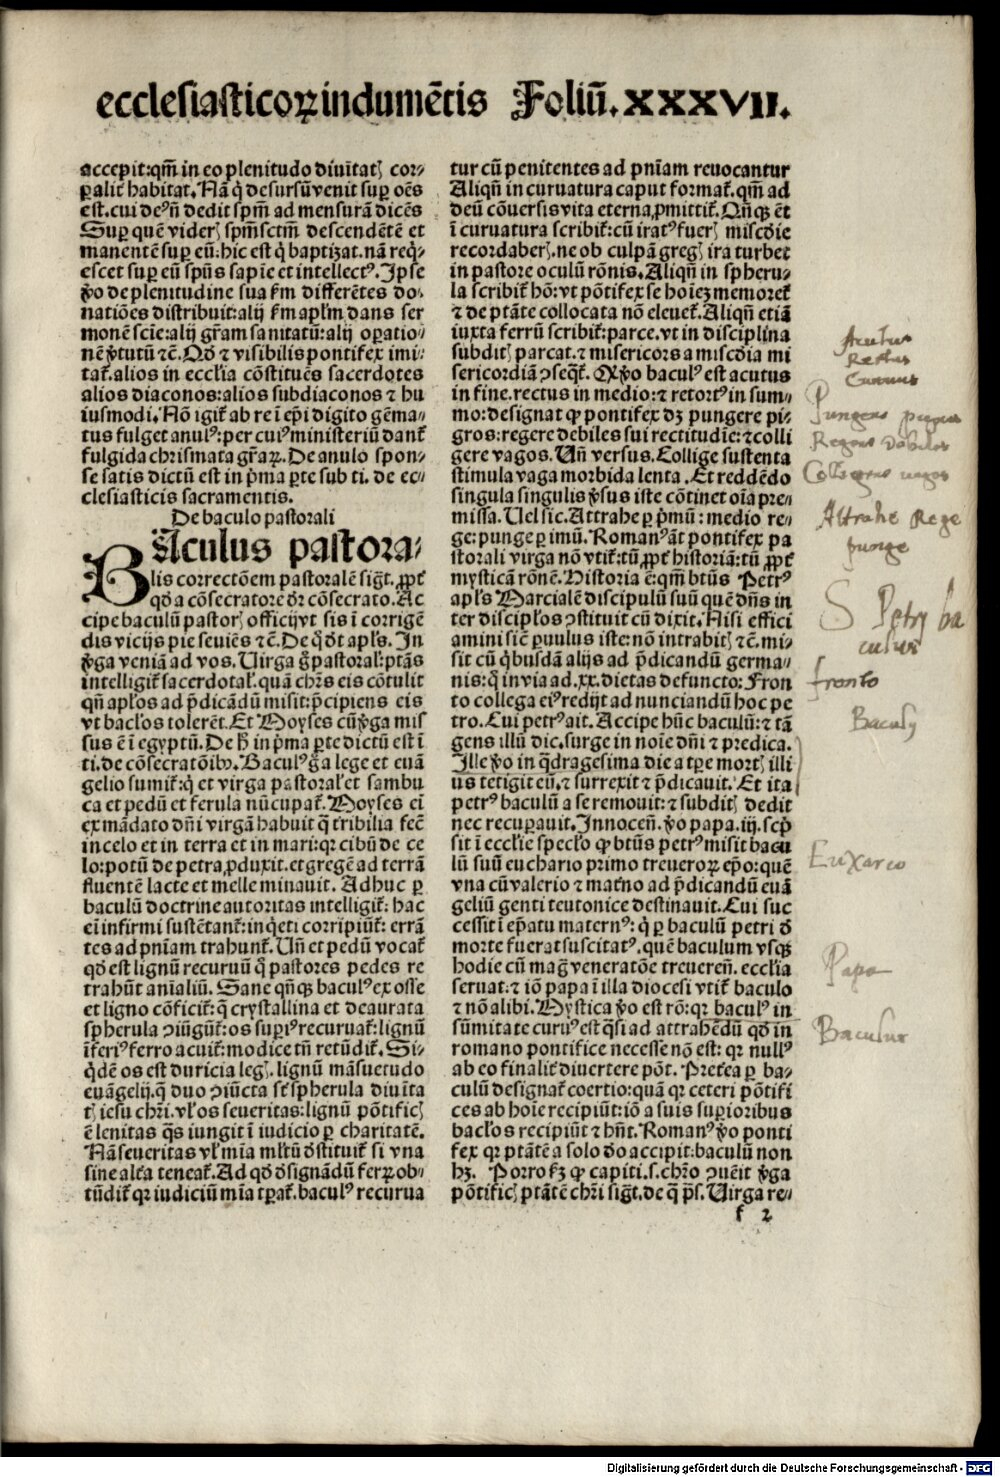 ecclesiasticoꝝ indumētis Foliū. XXXVII.
accepit: qm̄ in eo plenitudo diuītatꝭ cor⸗
ꝑalit̄ habitat. Nā q̇ desursū venit suꝑ oēs
est. cui deꝰ n̄ dedit spm̄ ad mensurā dicēs
Suꝑ quē viderꝭ spm̄ sctm̄ descendētē et
manentē suꝑ eū: hic est q̇ baptizat. nā req̇⸗
escet suꝑ eū spūs sapīe et intellectꝰ. Ipse
v̊o de plenitudine sua fm̄ differētes do⸗
natiōes distribuit: alij fm̄ apl̄m dans ser
monē scīe: alij gr̄am sanitatū: alij oꝑatio⸗
nē v̓tutū ⁊c̄. Qd̄ ⁊ visibilis pontifex imi⸗
tat̄. alios in eccl̄ia cōstituēs sacerdotes
alios diaconos: alios subdiaconos ⁊ hu
iusmodi. Nō igit̄ ab re ī ep̄i digito gēma⸗
tus fulget anulꝰ: per cuiꝰ ministeriū dant̄
fulgida chrismata gr̄aꝝ. De anulo spon⸗
se satis dictū est in p̄ma ꝑte sub ti. de ec⸗
clesiasticis sacramentis.
De baculo pastorali
BAculus pastora⸗
lis correctōem pastoralē sig̅t. ꝓpt̄
qd̄ a cōsecratore dr̄ cōsecrato. Ac
cipe baculū pastorꝭ officij vt sis ī corrigē
dis vicijs pie seuiēs ⁊c̄. De q̊ dt̄ apl̄s. In
v̓ga veniā ad vos. Uirga g̊ pastoral̄: ptās
intelligit̄ sacerdotal̄. quā chr̄s eis cōtulit
qn̄ aplos ad p̄dicādū misit: p̄cipiens eis
vt bacl̄os tolerēt. Et Moyses cū v̓ga mis
sus ē ī egyptū. De h̄ in p̄ma ꝑte dictū est ī
ti. de cōsecratōibꝰ. Baculꝰ g̊a lege et euā
gelio sumit̄: q̇ et virga pastoral̄ et sambu
ca et pedū et ferula nūcupat̄. Moyses eī
ex mādato dn̄i virgā habuit q̄ tr̄ibilia fec̄
in celo et in terra et in mari: qr̄ cibū de ce
lo: potū de petra ꝓduxit. et gregē ad terrā
fluentē lacte et melle minauit. Adhuc ꝑ
baculū doctrine autoritas intelligit̄: hac
eī infirmi sustētant̄: inq̇eti corripiūt̄: errā
tes ad pn̄iam trahunt̄. Un̄ et pedū vocat̄
qd̄ est lignū recuruū q̊ pastores pedes re
trahūt anīaliū. Sane qn̄qꝫ baculꝰ ex osse
et ligno cōficit̄: q̄ crystallina et deaurata
spherula ↄiūgūt̄: os suꝑiꝰ recuruat̄: lignū
īferiꝰ ferro acuit̄: modice tn̄ retūdit̄. Si⸗
q̇dē os est duricia legꝭ. lignū māsuetudo
euāgelij. q̄ duo ↄiūcta st̄ spherula diuīta
tꝭ iesu chr̄i. vl̄ os seueritas: lignū pōtificꝭ
ē lenitas q̄s iungit ī iudicio ꝑ charitatē.
Nā seueritas vl̄ mīa ml̄tū d̓stituit̄ si vna
sine alt̄a teneat̄. Ad qd̄ d̓signādū ferꝝ ob⸗
tūdit̄ qr̄ iudiciū mīa tꝑat̄. baculꝰ recurua
tur cū penitentes ad pn̄iam reuocantur
Aliqn̄ in curuatura caput format̄. qm̄ ad
deū cōuersis vita eterna ꝓmittit̄. Qn̄qꝫ ēt
ī curuatura scribit̄: cū iratꝰ fuerꝭ misc̄die
recordaberꝭ. ne ob culpā gregꝭ ira turbet
in pastore oculū rōnis. Aliqn̄ in spheru⸗
la scribit̄ hō: vt pōtifex se hoīeꝫ memoret̄
⁊ de ptāte collocata nō eleuet̄. Aliqn̄ etiā
iuxta ferrū scribit̄: parce. vt in disciplina
subditꝭ parcat. ⁊ misericors a misc̄dia mi
sericordiā ↄseq̄t̄. Q v̊o baculꝰ est acutus
in fine. rectus in medio: ⁊ retortꝰ in sum⸗
mo: designat ꝙ pontifex dꝫ pungere pi⸗
gros: regere debiles sui rectitudīe: ⁊ colli
gere vagos. Un̄ versus. Collige sustenta
stimula vaga morbida lenta. Et reddēdo
singula singulis v̓sus iste cōtinet oīa pre⸗
missa. Uel sic. Attrahe ꝑ p̄mū: medio re⸗
ge: punge ꝑ imū. Romanꝰ āt pontifex pa
storali virga nō vtit̄: tū ꝓpt̄ historiā: tū ꝓpt̄
mysticā rōnē. Historia ē: qm̄ bt̄us Petrꝰ
apl̄s Marcialē discipulū suū quē dn̄s in
ter discipl̄os ↄstituit cū dixit. Nisi effici
amini sicē ꝑuulus iste: nō intrabitꝭ ⁊c̄. mi⸗
sit cū q̇busdā alijs ad p̄dicandū germa⸗
nis: q̇ in via ad .xx. dietas defuncto: Fron
to collega eiꝰ redijt ad nunciandū hoc pe
tro. Cui petrꝰ ait. Accipe hūc baculū: ⁊ tā
gens illū dic. surge in noīe dn̄i ⁊ predica.
Ille v̊o in q̄dragesima die a tꝑe mortꝭ illi
us tetigit eū. ⁊ surrexit ⁊ p̄dicauit. Et ita
petrꝰ baculū a se remouit: ⁊ subditꝭ dedit
nec recuꝑauit. Innocen̄. v̊o papa .iij. scp̄
sit ī ecclīe specl̄o ꝙ bt̄us petrꝰ misit bacu
lū suū euchario primo treueroꝝ ep̄o: quē
vna cū valerio ⁊ mat̄no ad p̄dicandū euā
geliū genti teutonice destinauit. Cui suc
cessit ī ep̄atu maternꝰ: q̇ ꝑ baculū petri d̓
morte fuerat suscitatꝰ. quē baculum vsqꝫ
hodie cū mag̅ veneratōe treueren̄. ecclīa
seruat. ⁊ iō papa ī illa diocesi vtit̄ baculo
⁊ nō alibi. Mystica v̊o est rō: qr̄ baculꝰ in
sūmitate curuꝰ est q̄si ad attrahēdū qd̄ in
romano pontifice necesse nō est: qr̄ nullꝰ
ab eo finalit̄ diuertere pōt. Preterea ꝑ ba⸗
culū designat̄ coertio: quā qr̄ ceteri pōtifi
ces ab hoīe recipiūt: iō a suis suꝑioribus
bacl̄os recipiūt ⁊ hn̄t. Romanꝰ v̊o ponti
fex qr̄ ptātē a solo d̓o accipit: baculū non
hꝫ. Porro lꝫ ꝙ capiti .s. chr̄o ↄuēit v̓ga
pōtificꝭ ptātē chr̄i sig̅t. de q̄ p̄s. Uirga re⸗
f 2
Acutus
Rectus
Curuus
Pungens pigros
Regens Debiles
Colligens vagos
Attrahe Rege
punge
S Petry ba
culus
fronto
Baculy
Euxario
Papa
Baculus
Digitalisierung gefördert durch die Deutsche Forschungsgemeinschaft - DFG